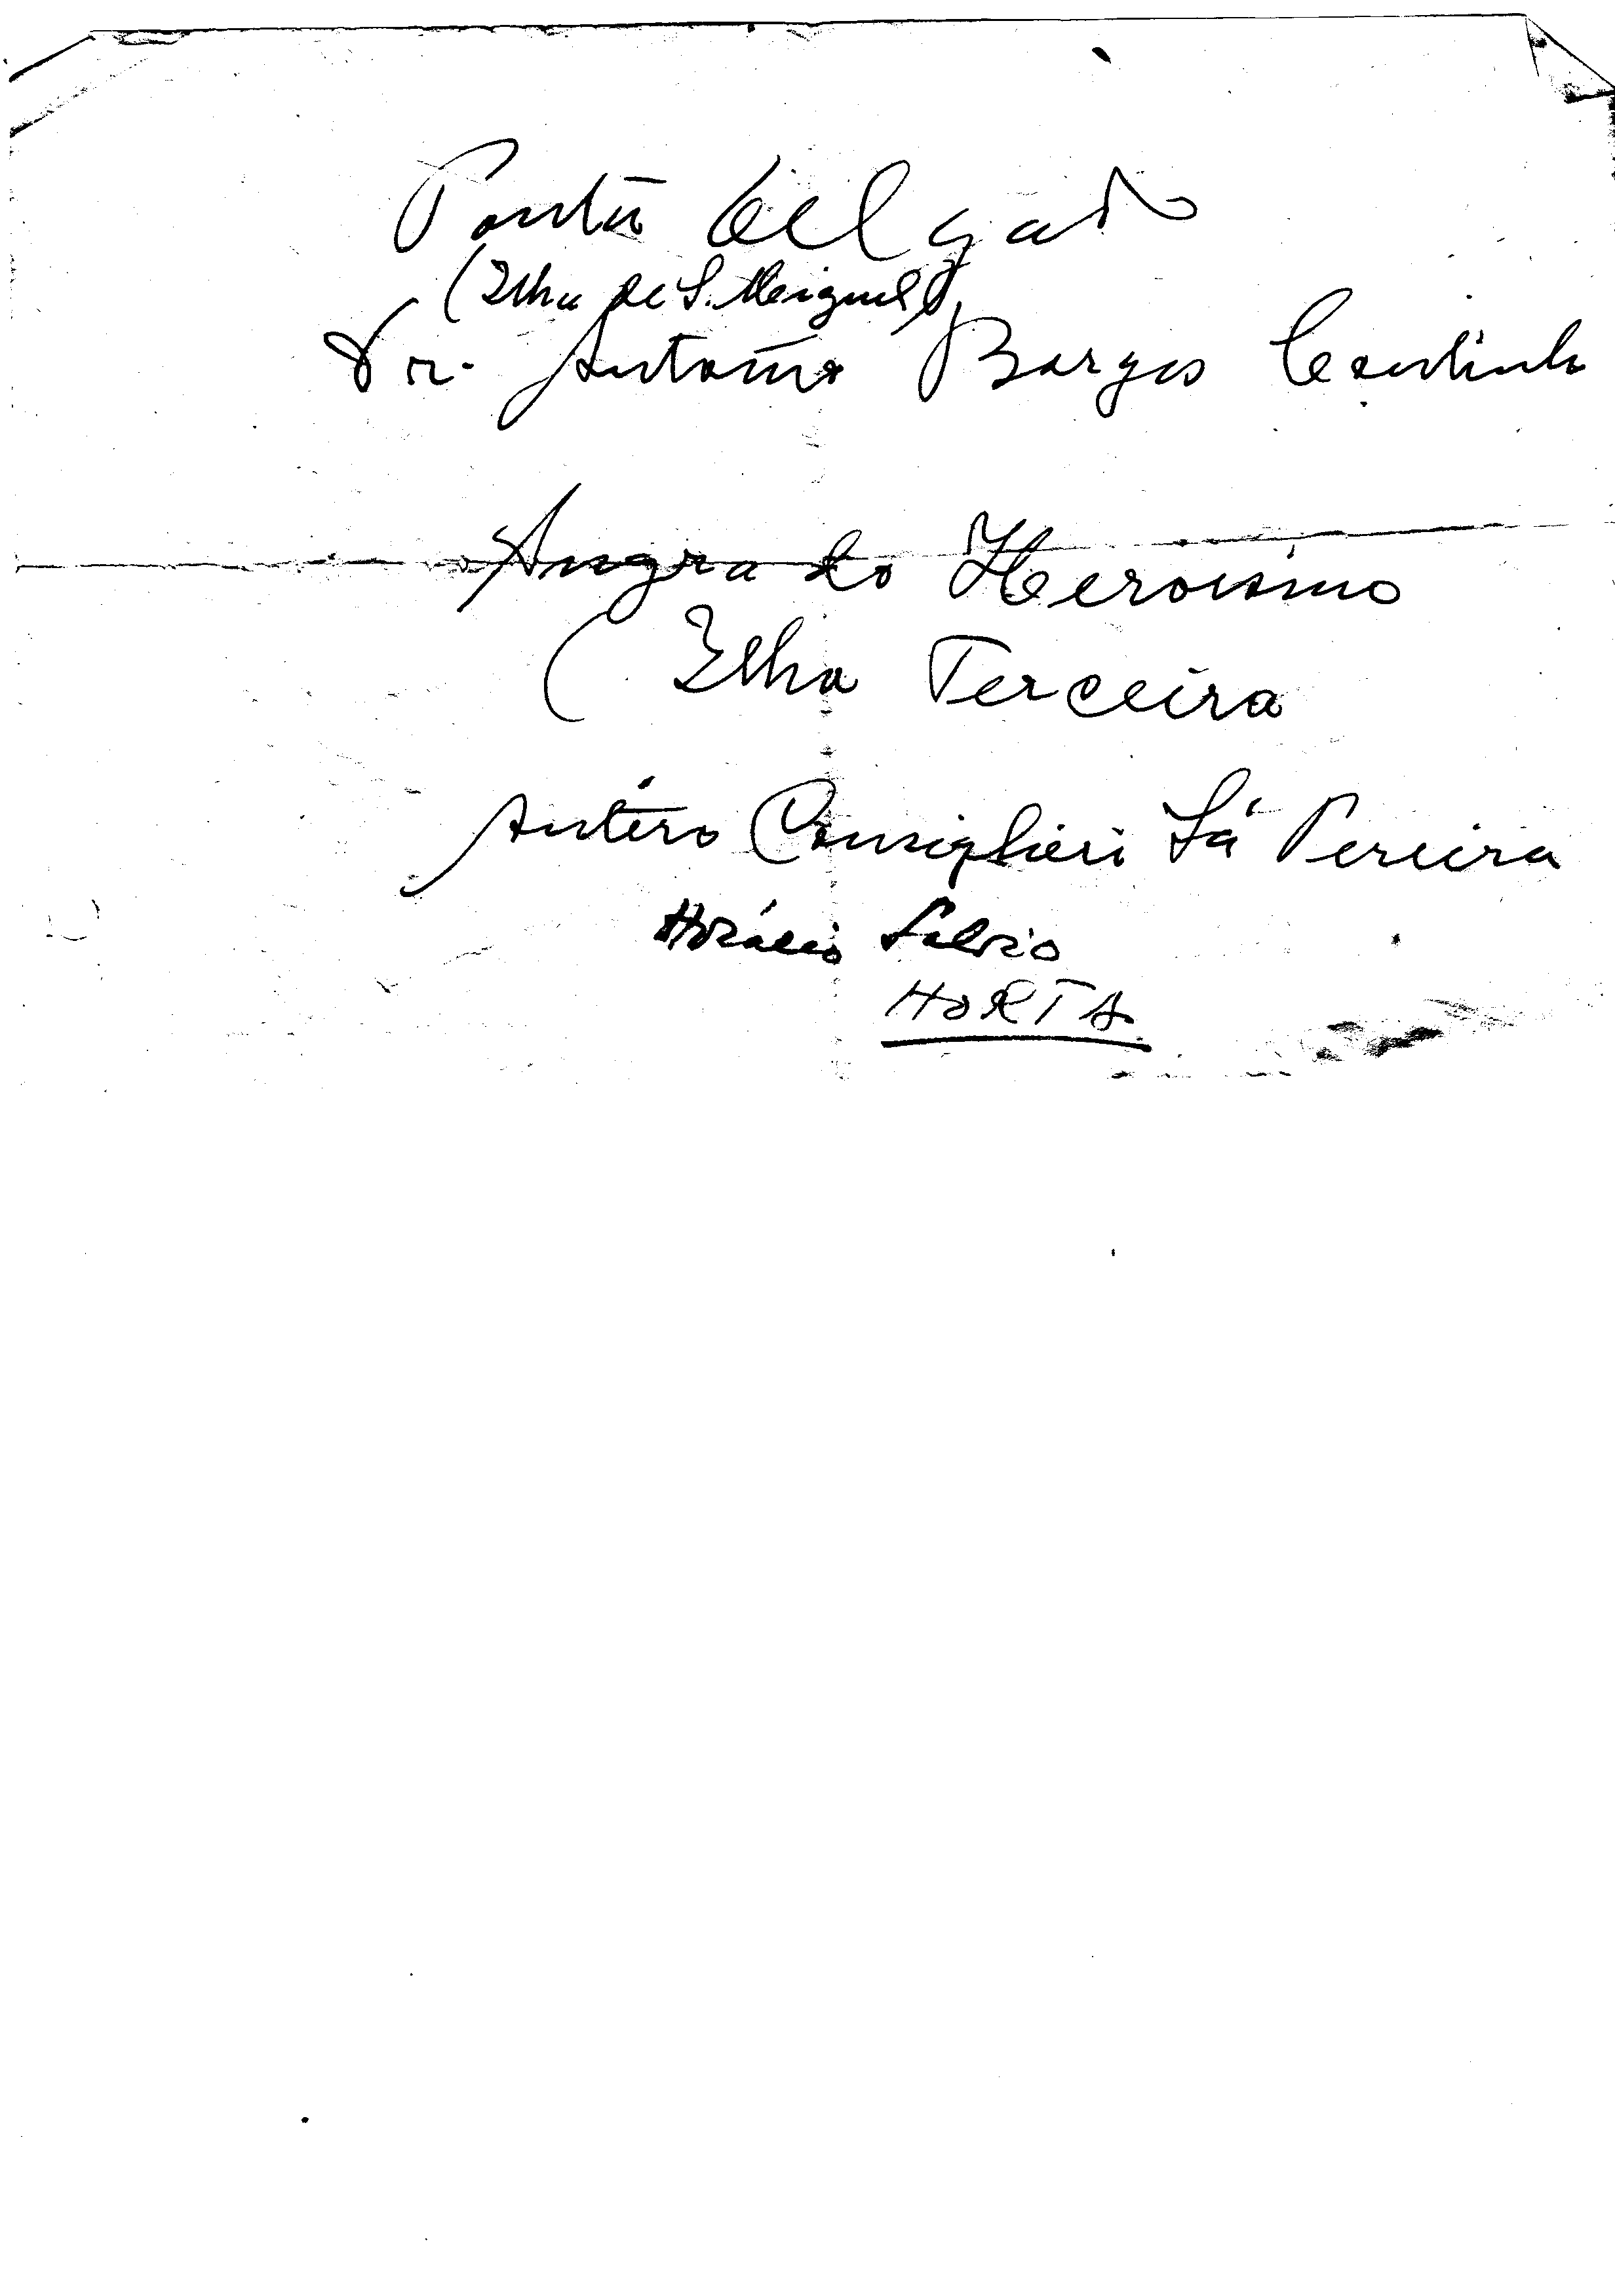 Ponta Delgada
(Ilha de S. Meiguel)
Dr. António Borges Coutinho
Angra do Heroísmo
( Ilha Terceira
Antéro Consiglieri Sá Pereira
Horácio Flávio
HORTA